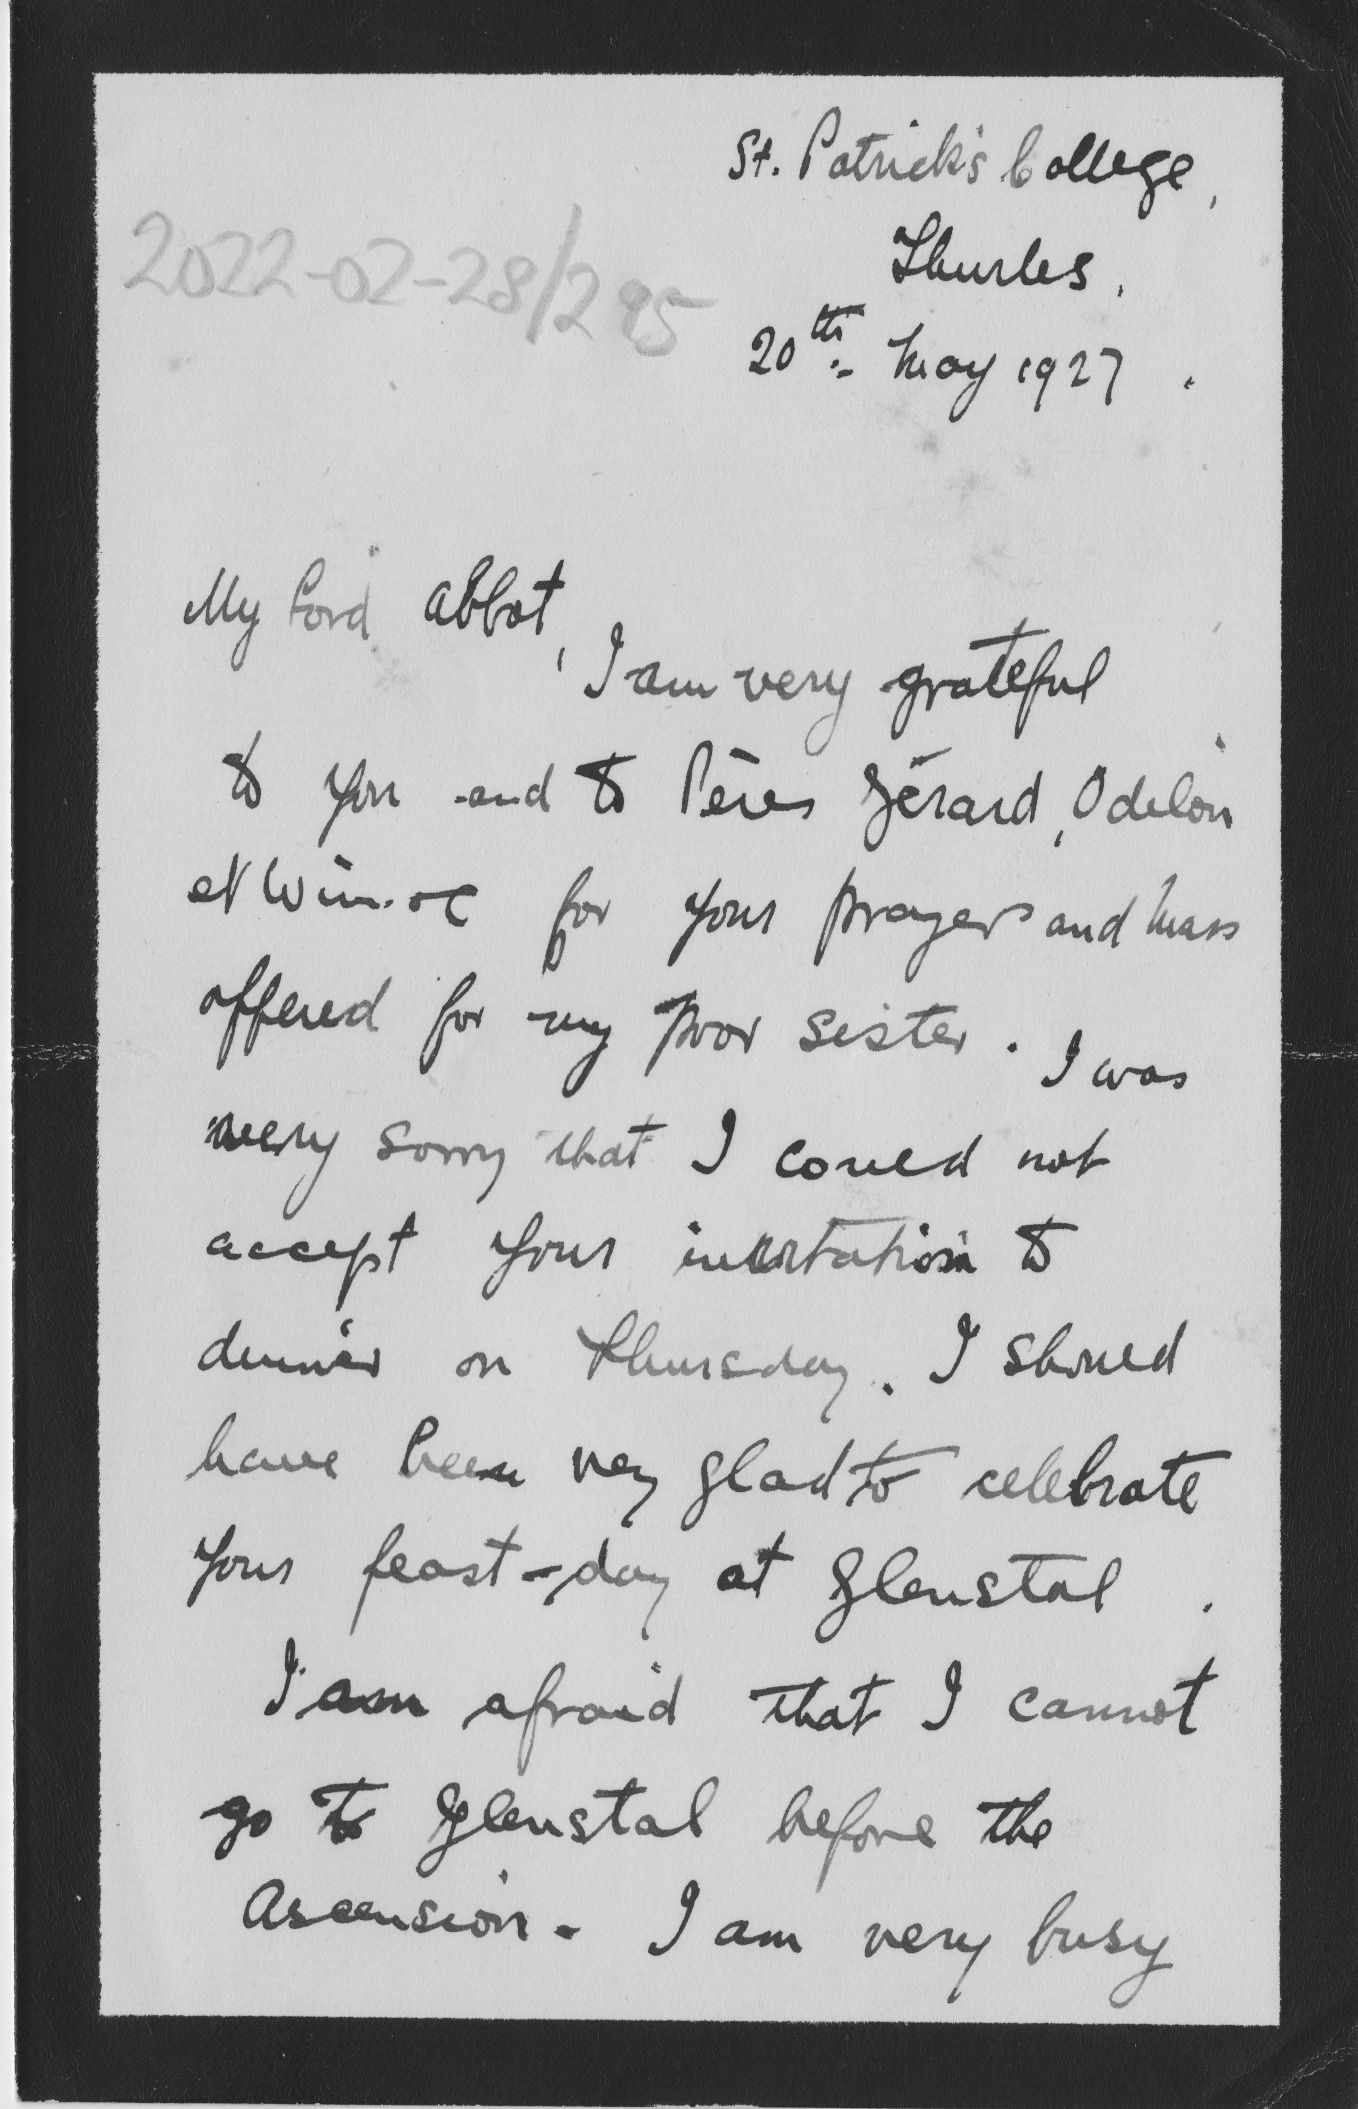 St. Patrick's College,
Thurles.
2022-02-28/295
20th May 1927.
My Lord Abbot,
I am very grateful
to you and to Pères Gérard, Odelon
et Winoc for your prayers and Mass
offered for my poor sister. I was
very sorry that I could not
accept your invitation to
dinner on Thursday. I should
have been very glad to celebrate
your feast-day at Glenstal.
I am afraid that I cannot
go to Glenstal before the
Ascension. I am very busy